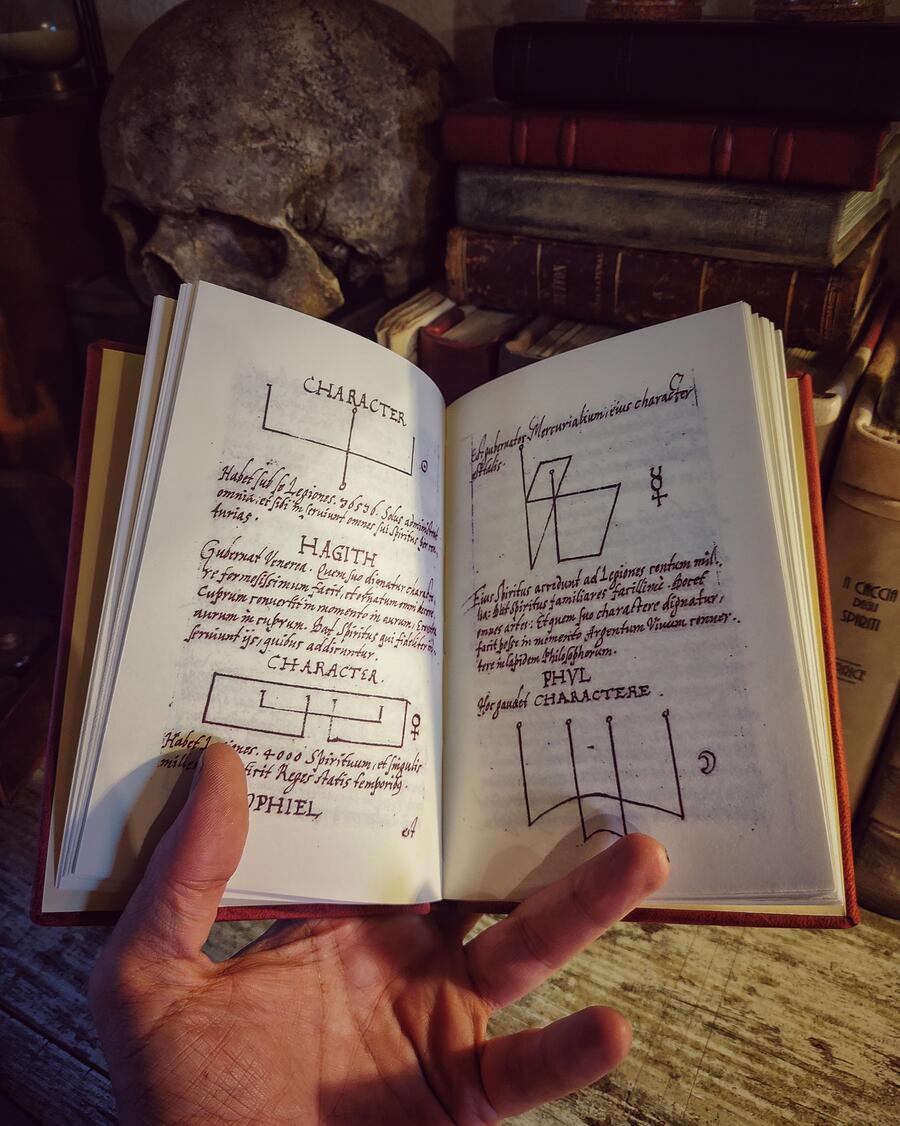 CHARACTER
☉
Habet sub se Legiones. 36536. Solus administrat
omnia, et sibi inserviunt omnes sui Spiritus per
turias.
HAGITH
Gubernat Venerea. Quem suo dignatur charact
re formosissimum facit, et ornatum omni decore.
Cuprum convertit in momento in aurum, &
aurum in cuprum. Dat Spiritus qui fideliter
serviunt ijs, quibus addicuntur.
CHARACTER.
♀
Habet Legiones. 4000 Spirituum, et singulis
Reges statis temporibꝫ.
OPHIEL
est
Est gubernator Mercurialium, eius character
est talis.
☿
Eius Spiritus accedunt ad Legiones centum mill.
lia: Dat Spiritus familiares facillimè. Docet
omnes artes: Et quem suo charactere dignatur,
facit posse in momento Argentum Vivum conver.
tere in lapidem Philosophorum.
PHVL
Hoc gaudet CHARACTERE.
☽
A CACCIA
DEGLI
SPIRITI